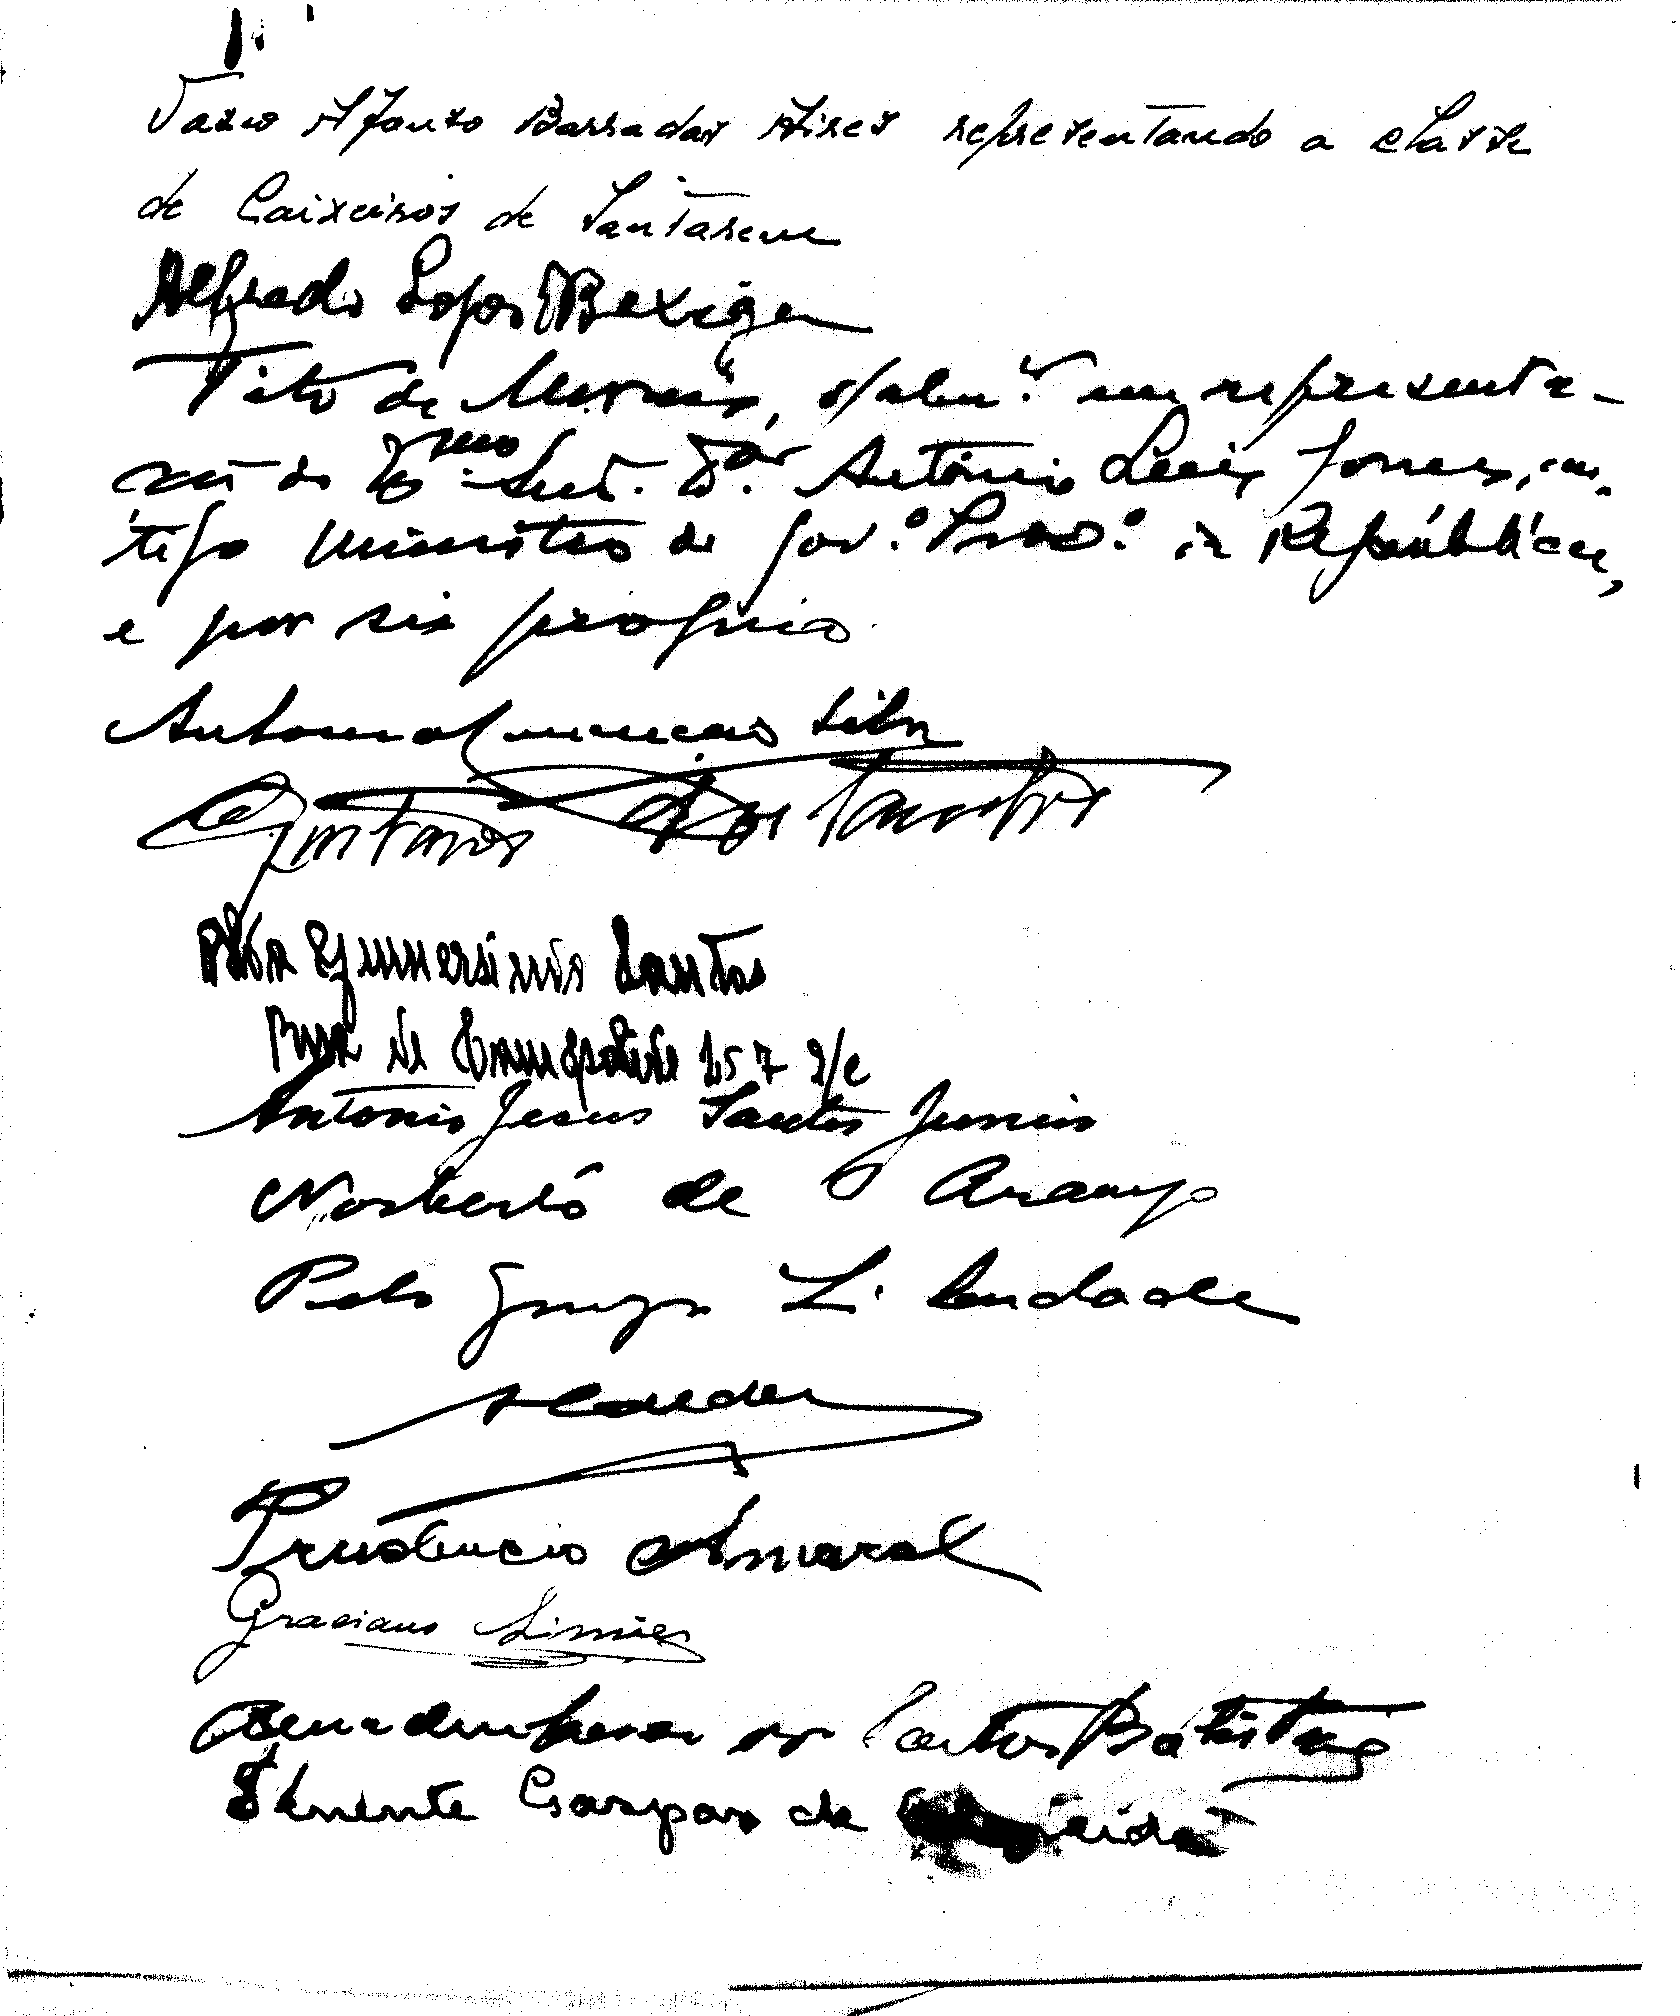 Vasco Afonso Barradas Aires representando a classe
de Caixeiros de Santarem
Alfredo Lopes Bexiga
Tito de Moraes, em representa-
ção do Exmo Snr. Dor António Luiz Gomes, an-
tigo ministro do Gov.º Prov.º da República,
e por si proprio
Silva
Santos
Rua de Campolide 257 r/c
Antonio Jesus Santos Junior
Norberto de Araujo
Pedro L. Andrade
Prudencio Amaral
Graciano Simões
dos Santos Batista
Tenente Gaspar de